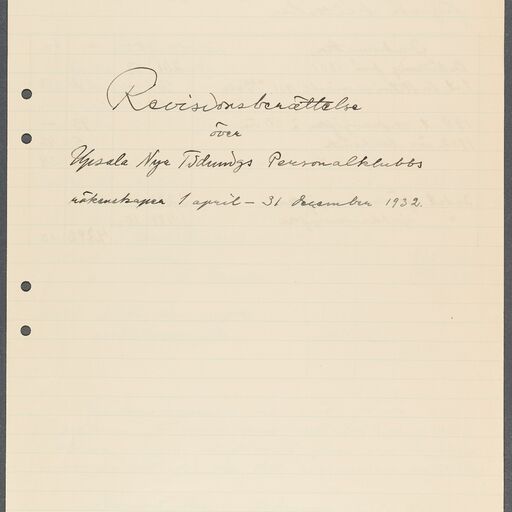 Revisionsberättelse
över
Upsala Nya Tidnings Personalklubbs
räkenskaper 1 april – 31 december 1932.